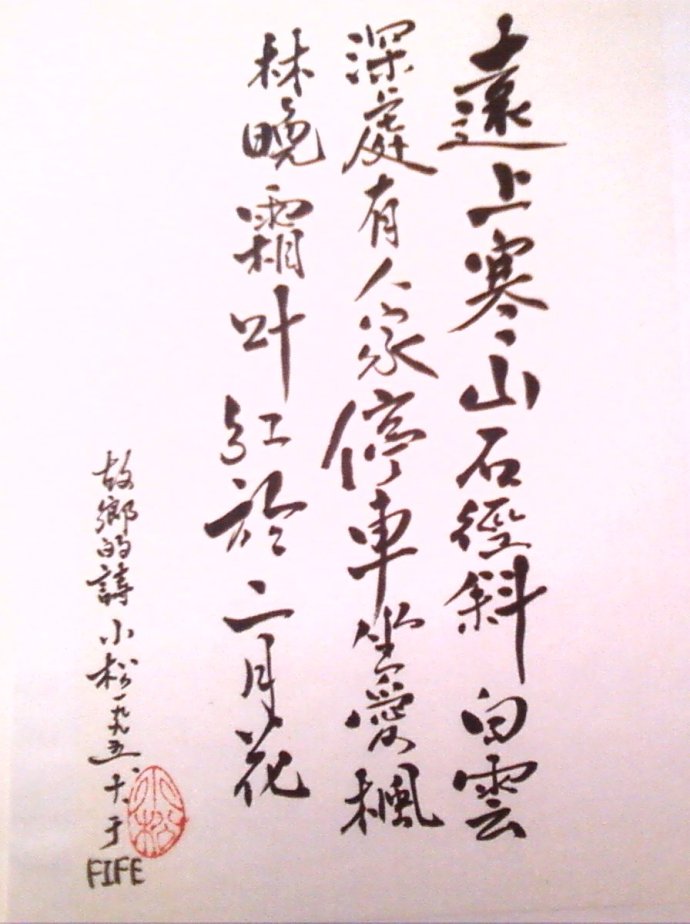 遠上寒山石徑斜白雲
深處有人家停車坐愛楓
林晚霜叶红於二月花
故鄉的詩小松一九九五、十、于
FIFE
小松